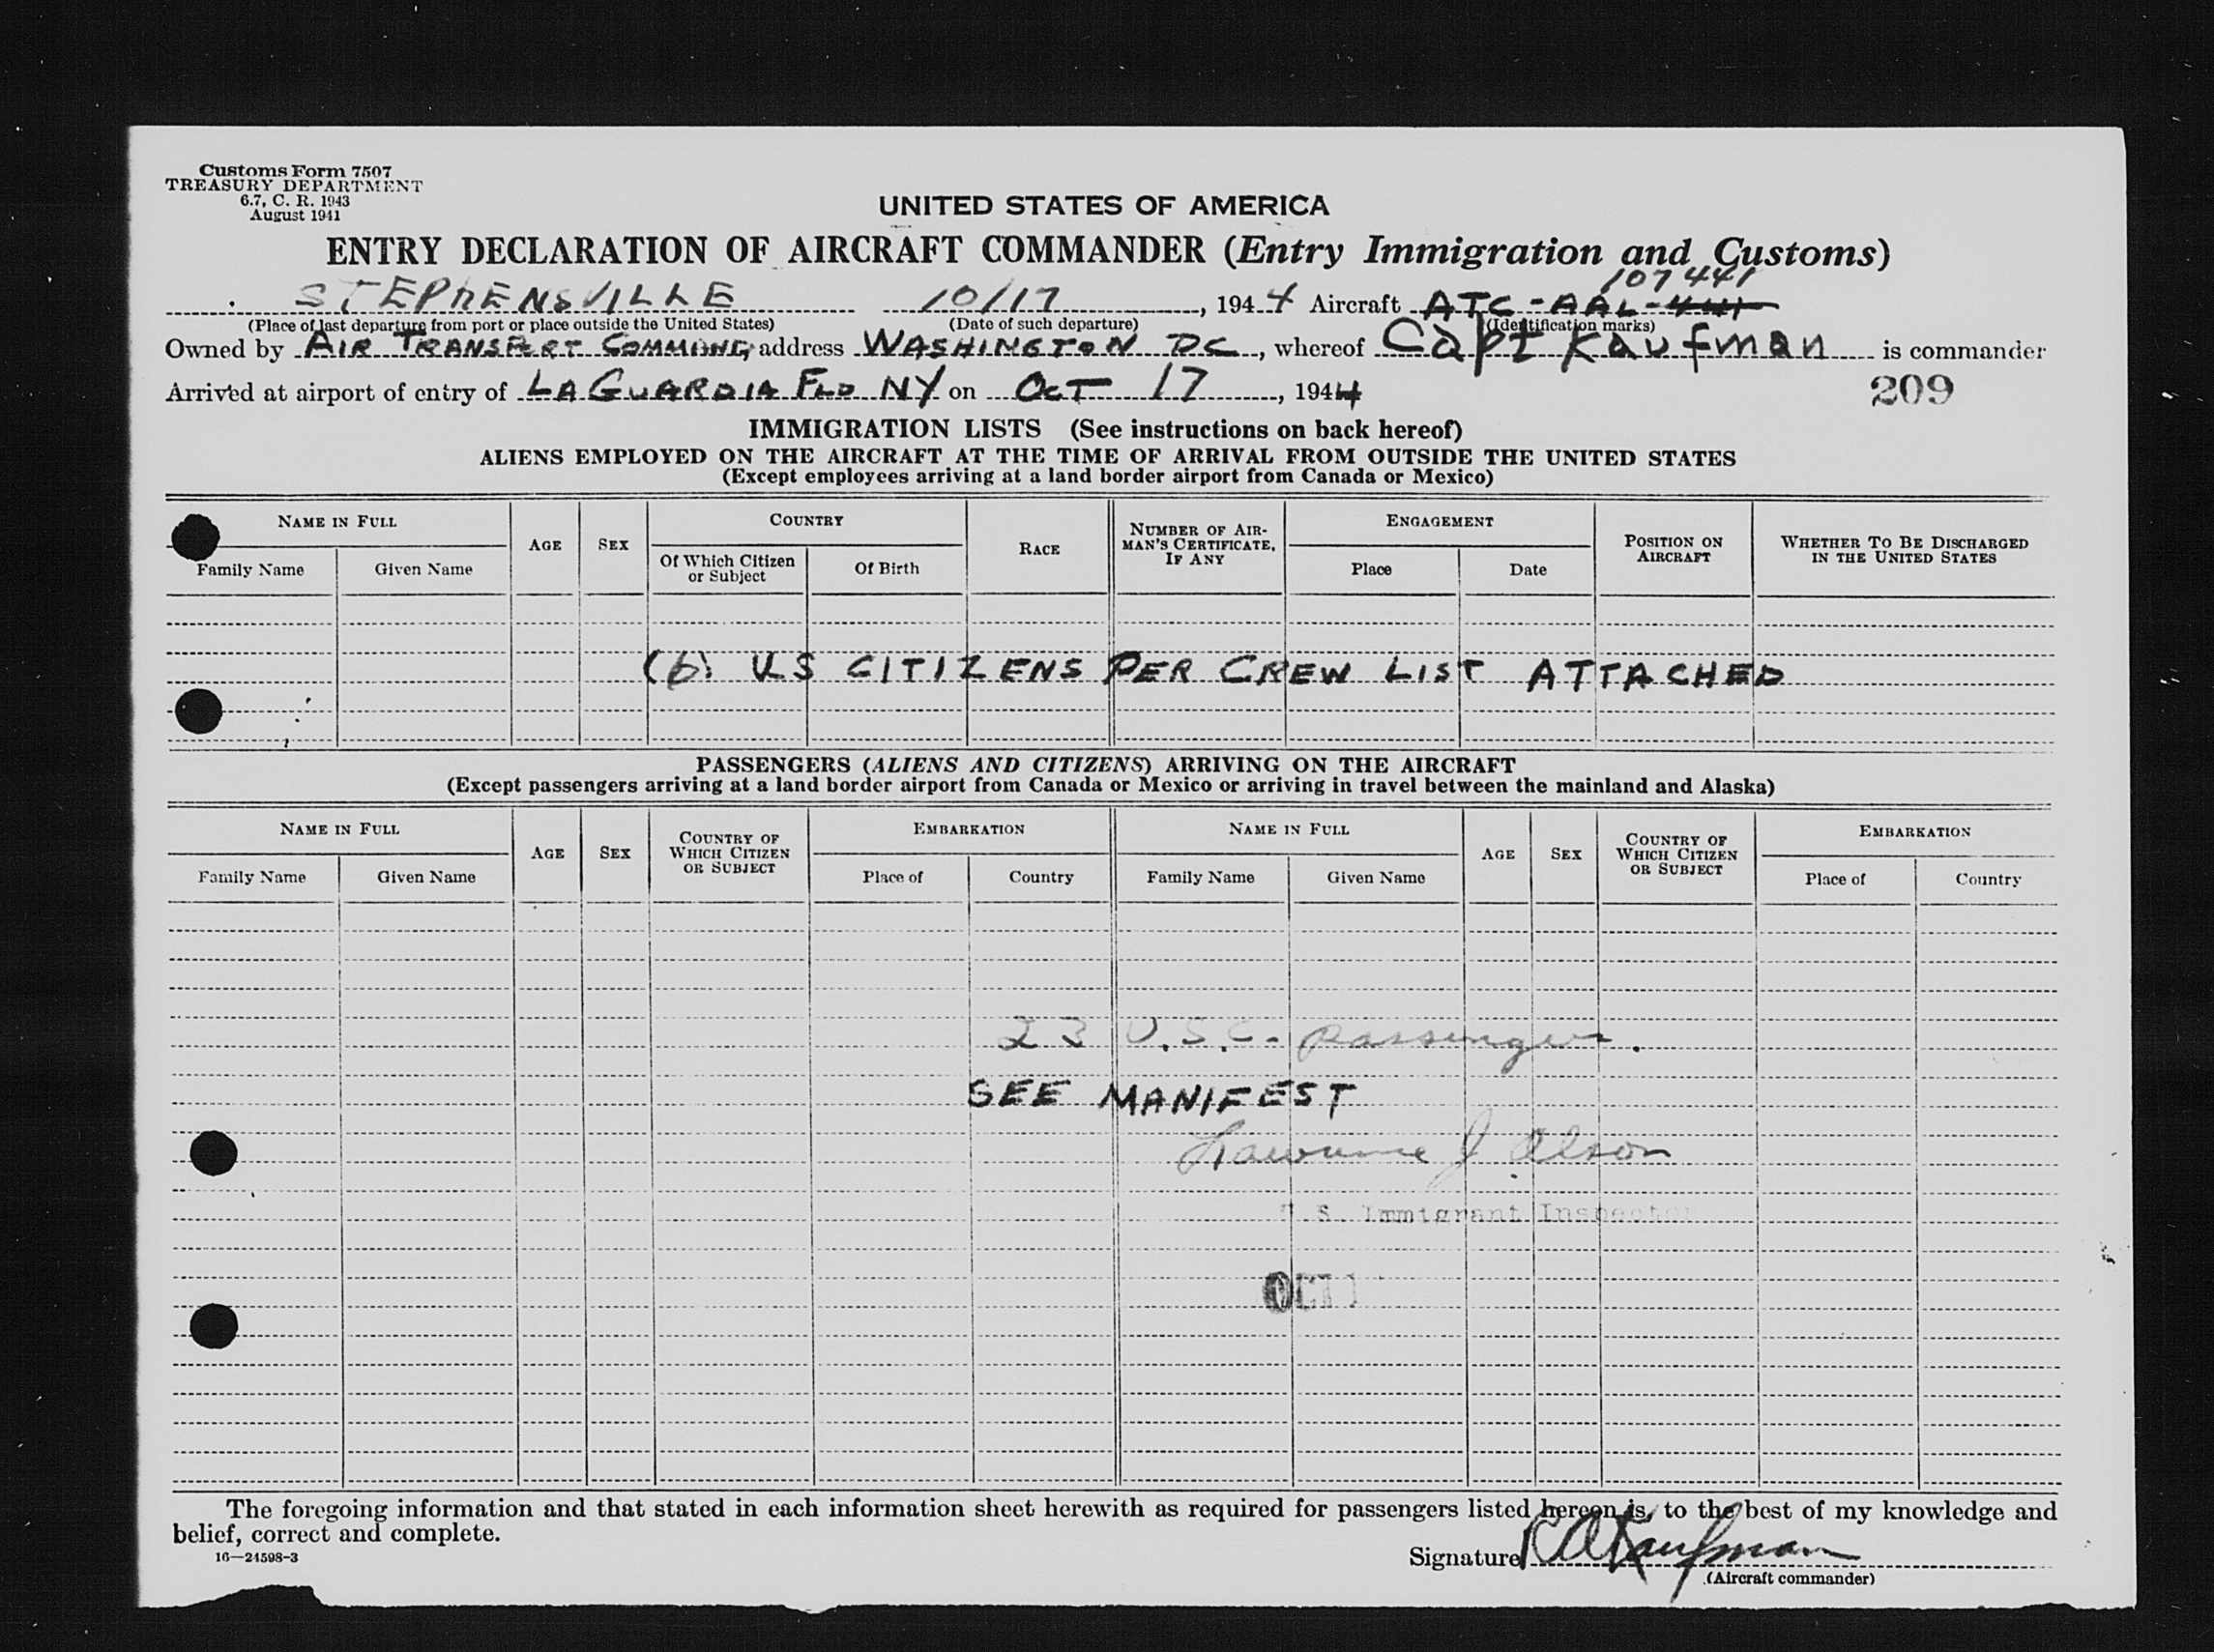 Customs Form 7507
TREASURY DEPARTMENT
6.7, C. R. 1943
August 1941
UNITED STATES OF AMERICA
ENTRY DECLARATION OF AIRCRAFT COMMANDER (Entry Immigration and Customs)
107441
STEPHENSVILLE 10/17, 1944 Aircraft ATC-AAL-441
(Place of last departure from port or place outside the United States) (Date of such departure) (Identification marks)
Owned by AIR TRANSPORT COMMAND, address WASHINGTON DC, whereof Capt Kaufman is commander
Arrived at airport of entry of LA GUARDIA FLD NY on OCT 17, 1944
209
IMMIGRATION LISTS (See instructions on back hereof)
ALIENS EMPLOYED ON THE AIRCRAFT AT THE TIME OF ARRIVAL FROM OUTSIDE THE UNITED STATES
(Except employees arriving at a land border airport from Canada or Mexico)
NAME IN FULL AGE SEX COUNTRY RACE NUMBER OF AIRMAN'S CERTIFICATE, IF ANY ENGAGEMENT POSITION ON AIRCRAFT WHETHER TO BE DISCHARGED IN THE UNITED STATES
Family Name Given Name Of Which Citizen or Subject Of Birth Place Date
(6) US CITIZENS PER CREW LIST ATTACHED
PASSENGERS (ALIENS AND CITIZENS) ARRIVING ON THE AIRCRAFT
(Except passengers arriving at a land border airport from Canada or Mexico or arriving in travel between the mainland and Alaska)
NAME IN FULL AGE SEX COUNTRY OF WHICH CITIZEN OR SUBJECT EMBARKATION NAME IN FULL AGE SEX COUNTRY OF WHICH CITIZEN OR SUBJECT EMBARKATION
Family Name Given Name Place of Country Family Name Given Name Place of Country
23 U.S.C. passengers.
SEE MANIFEST
Lawrence J. Olson
U. S. Immigrant Inspector
OCT
The foregoing information and that stated in each information sheet herewith as required for passengers listed hereon is, to the best of my knowledge and
belief, correct and complete.
16—24598-3
Signature R A Kaufman
(Aircraft commander)